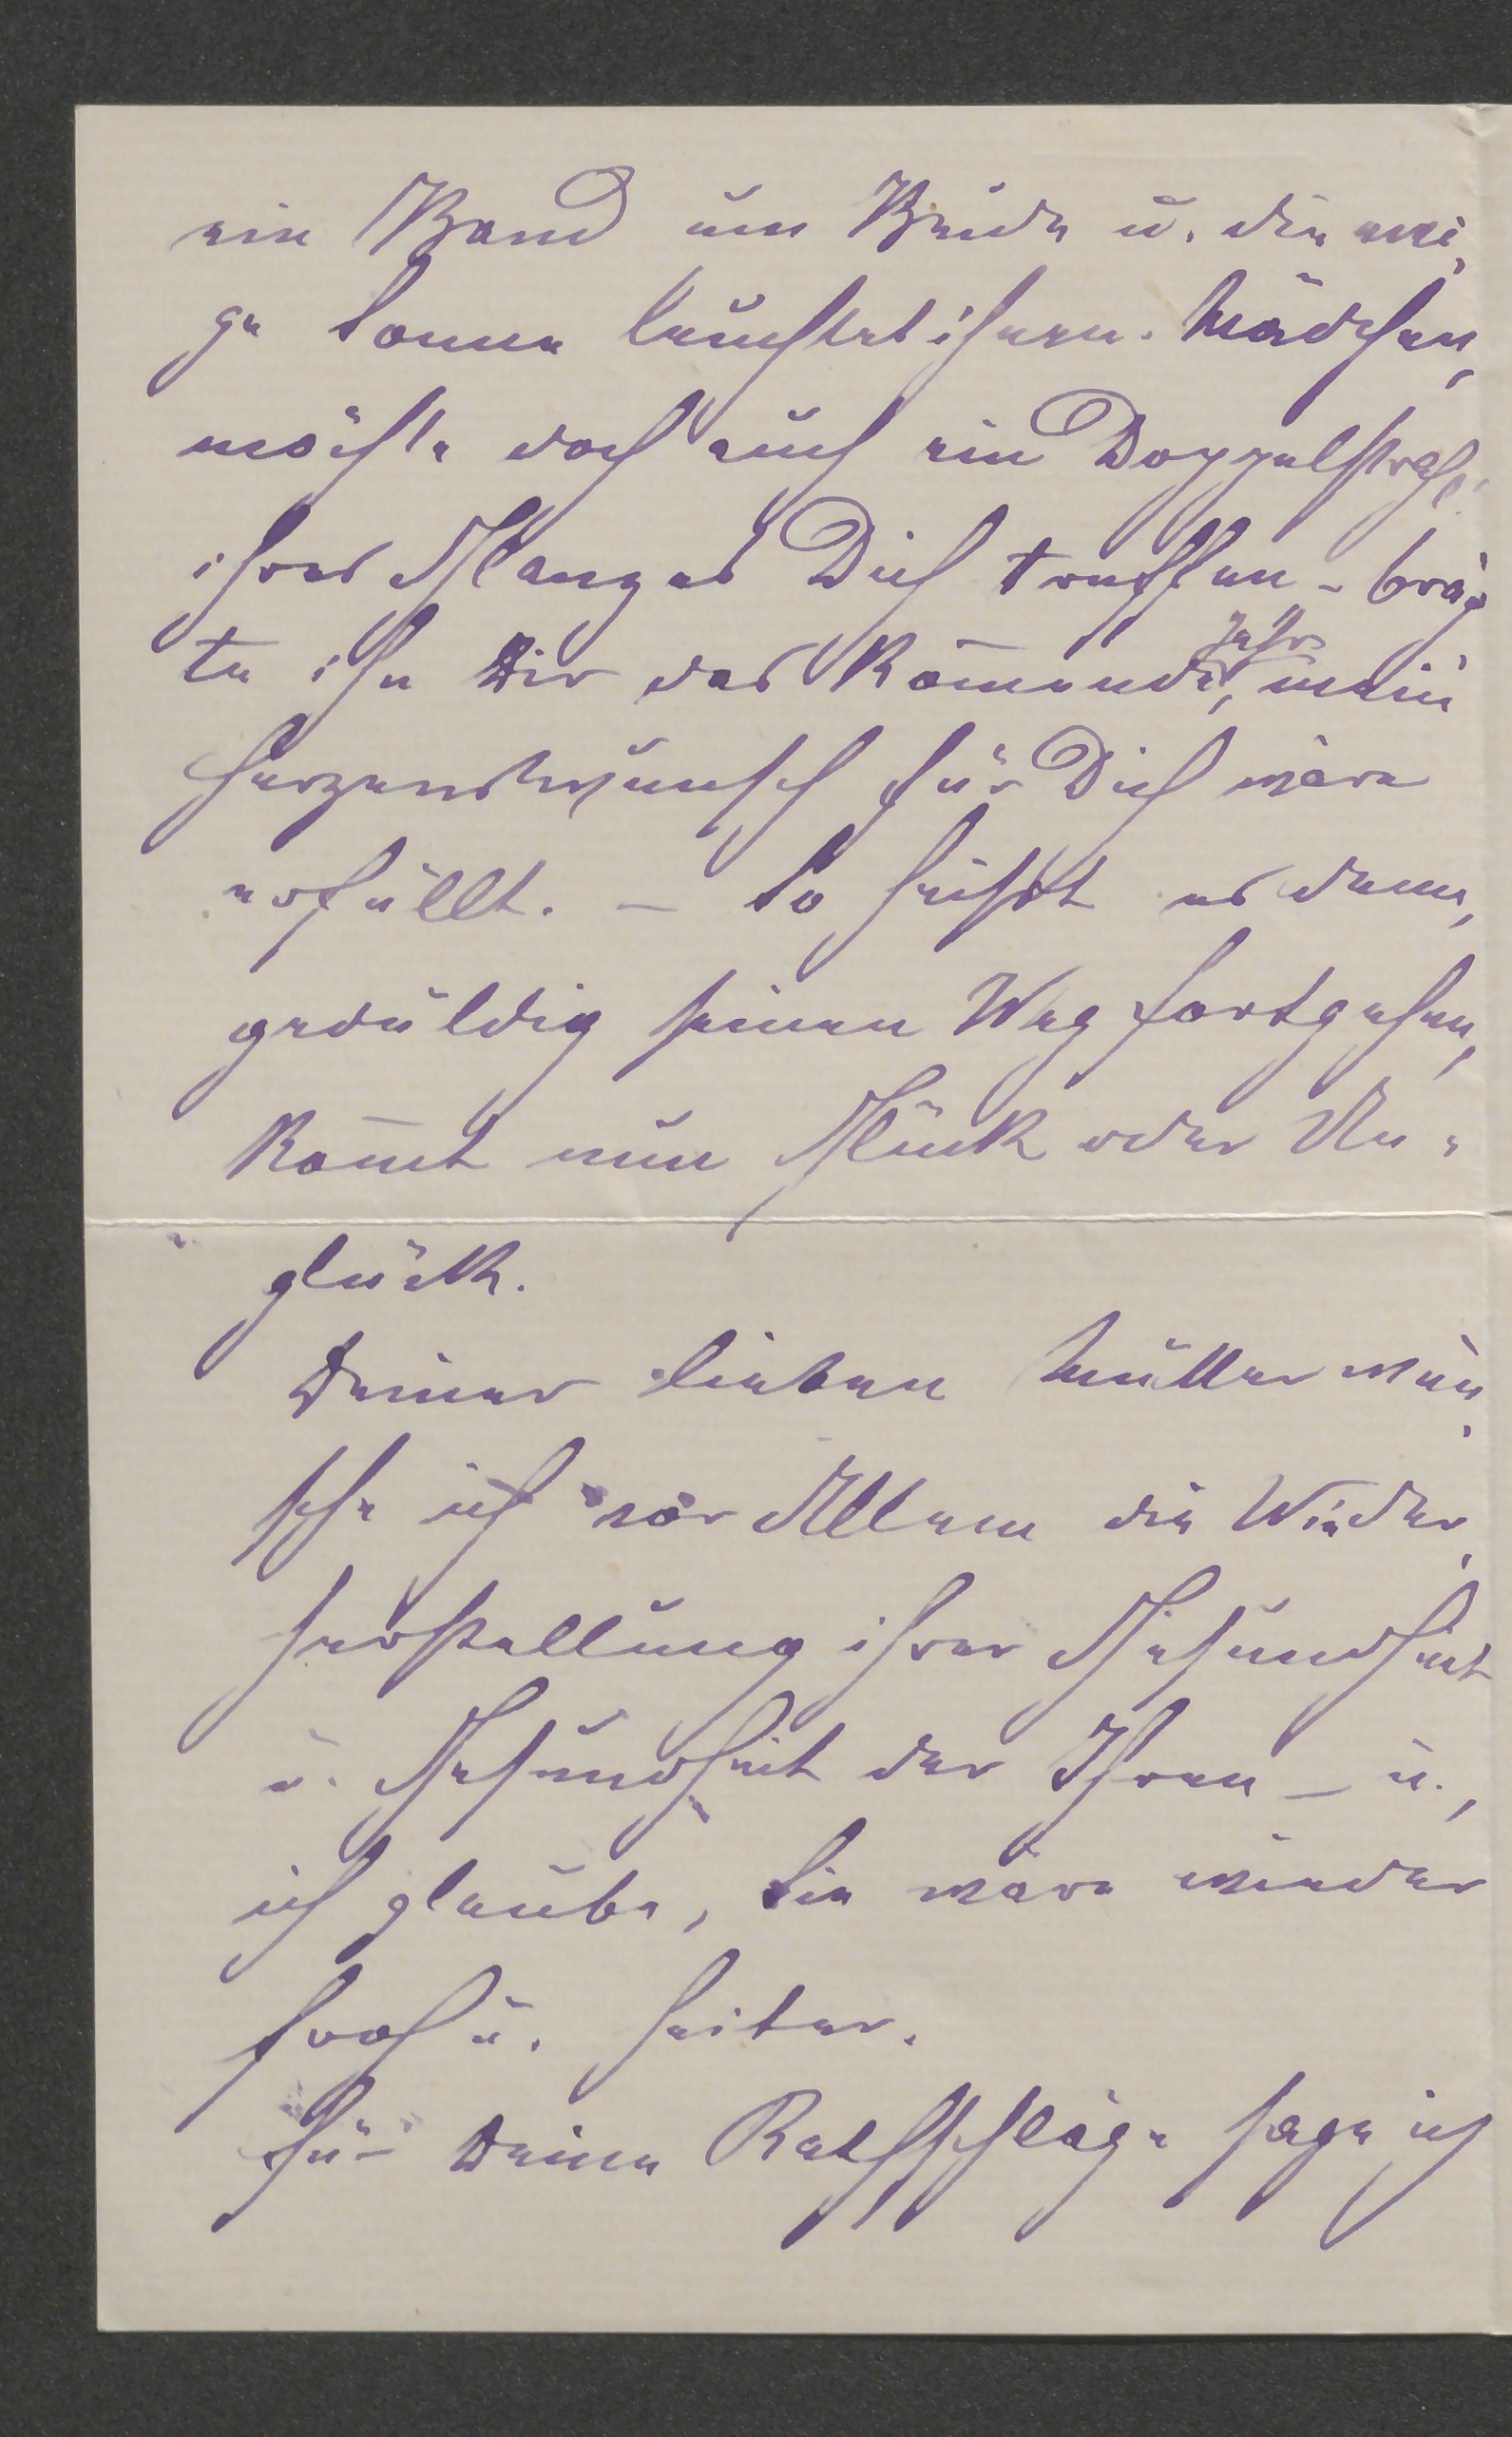 ein Band um Beide u. die ewi-
ge Sonne leuchtet ihnen. Mädchen,
möchte doch auch ein Doppelstrahl
ihres Glanzes Dich treffen – bräch
te ihn Dir das kom̄ende Jahr, mein
Herzenswunsch für Dich wäre
erfüllt. – So heißt es denn,
geduldig seinen Weg fortgehen,
kom̄t nun Glück oder Un-
glück.
Deiner lieben Mutter wün-
sche ich vor Allem die Wieder-
herstellung ihrer Gesundheit
u. Gesundheit der Ihren – u.,
ich glaube, Sie wäre wieder
froh u. heiter.
Für Deine Rathschläge sage ich